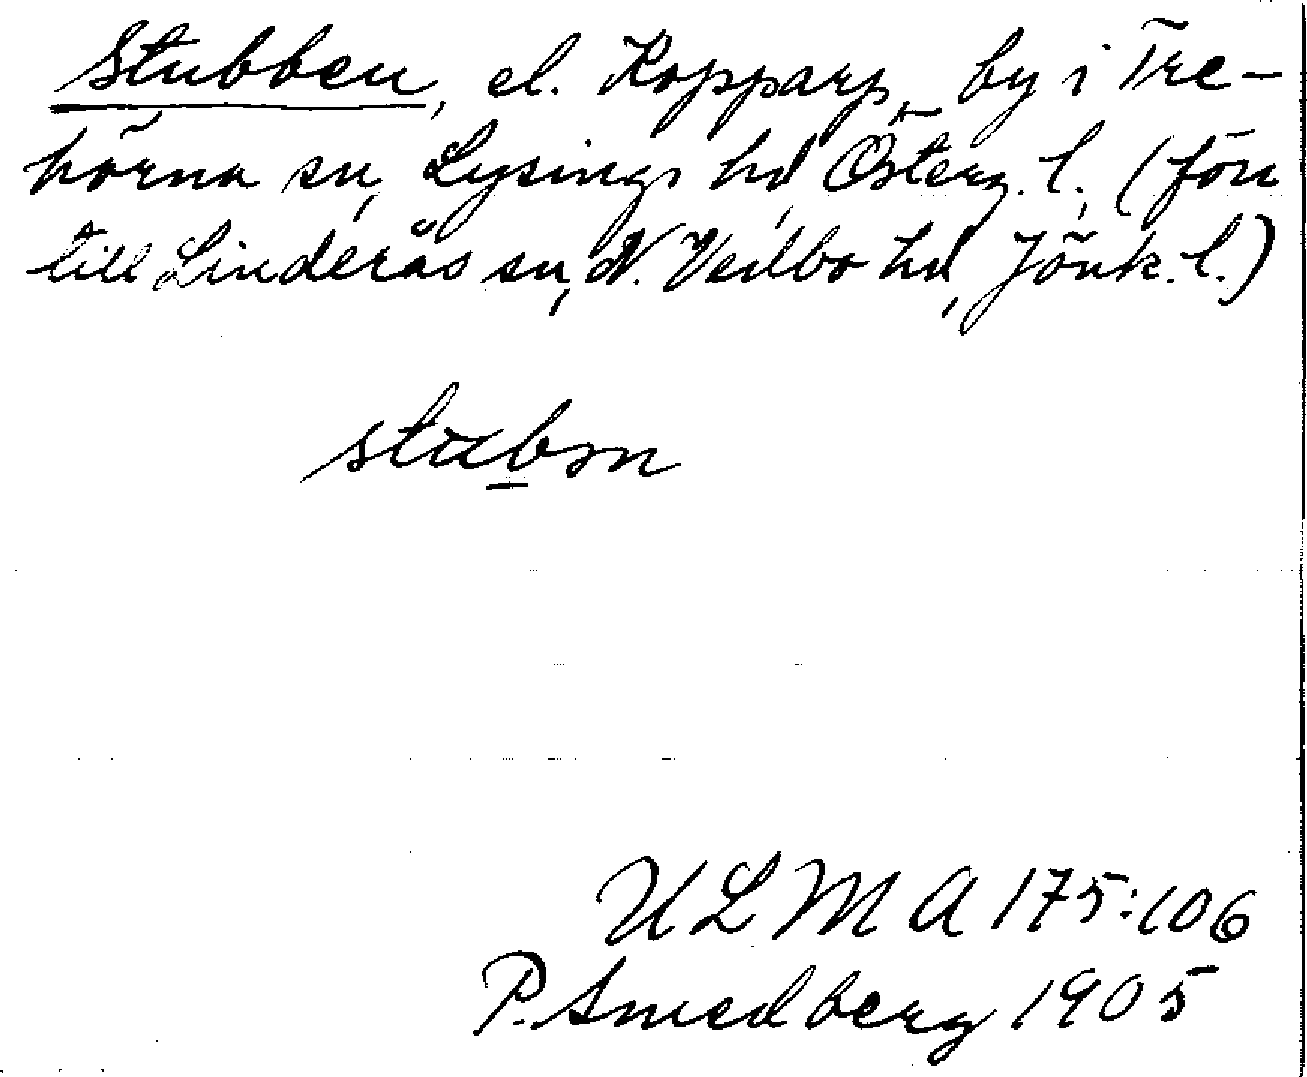 Stubben, el. Kopparp, by i Tre-
hörna sn, Lysings hd, Österg. l. (förr
till Linderås sn, N. Vedbo hd, Jönk. l.)
stubən
ULMA 175:106
P. Smedberg 1905